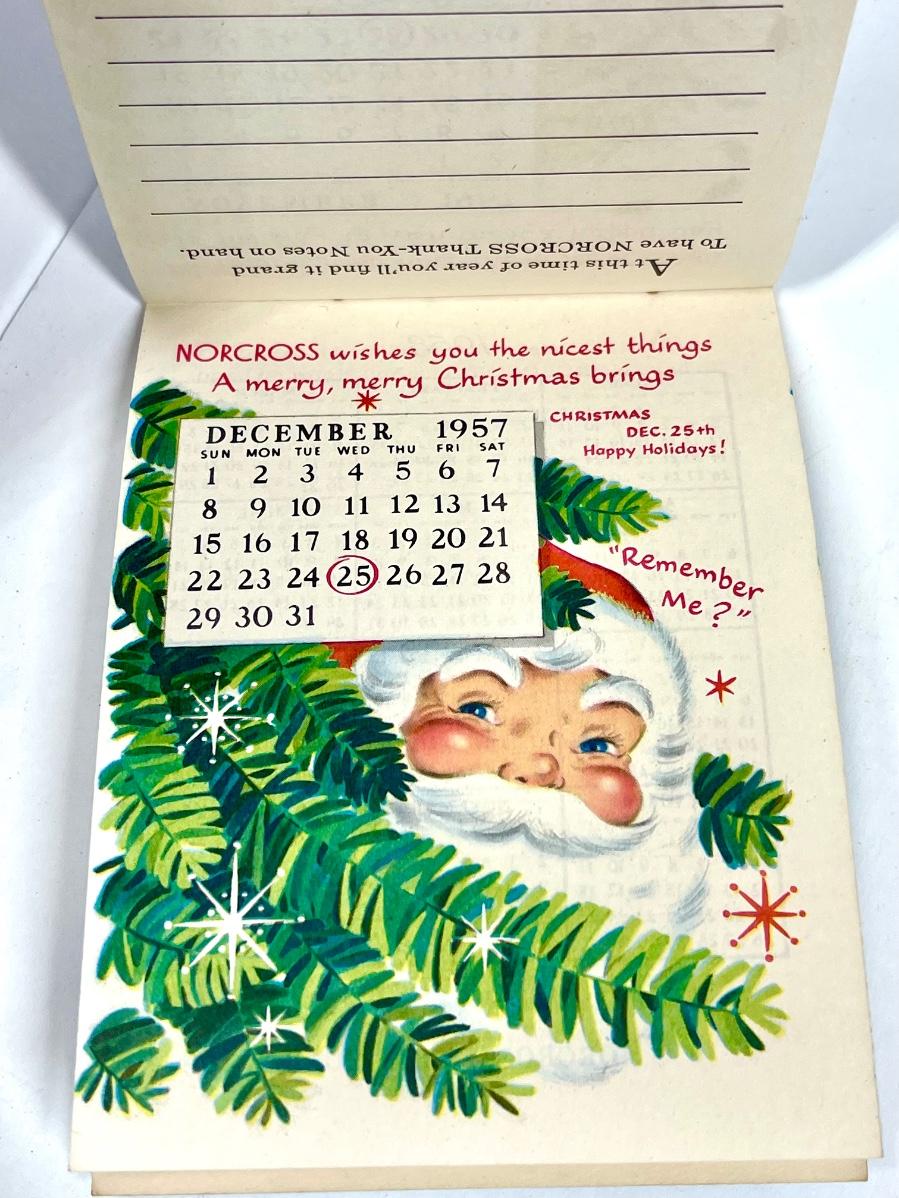 At this time of year you'll find it grand
To have NORCROSS Thank-You Notes on hand.
NORCROSS wishes you the nicest things
A merry, merry Christmas brings
DECEMBER 1957
SUN MON TUE WED THU FRI SAT
1 2 3 4 5 6 7
8 9 10 11 12 13 14
15 16 17 18 19 20 21
22 23 24 25 26 27 28
29 30 31
CHRISTMAS
DEC. 25th
Happy Holidays!
"Remember
Me?"